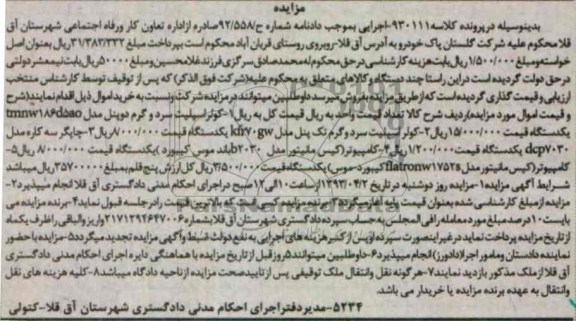 مزایده
بدینوسیله در پرونده کلاسه ۹۳۰۱۱۱-اجرایی بموجب دادنامه شماره ح/۹۲/۵۵۸ صادره از اداره تعاون کار و رفاه اجتماعی شهرستان آق
قلا محکوم علیه شرکت گلستان پاک خودرو به آدرس آق قلا-روبروی روستای قربان آباد محکوم است بپرداخت مبلغ ۳۱/۳۸۳/۳۳۲ ریال بعنوان اصل
خواسته ومبلغ ۱/۵۰۰/۰۰۰ ریال بابت هزینه کارشناسی در حق محکوم له محمدصادق سرگزی فرزند غلامحسین ومبلغ ۵۰۰۰۰ ریال بابت نیمعشر دولتی
در حق دولت گردیده است در این راستا چند دستگاه و کالاهای متعلق به محکوم علیه (شرکت فوق الذکر) که پس از توقیف توسط کارشناس منتخب
ارزیابی و قیمت گذاری گردیده است که از طریق مزایده بفروش میرسد داوطلبین میتوانند در مزایده شرکت ونسبت به خرید اموال ذیل اقدام نمایند (شرح
و قیمت اموال مورد مزایده) ردیف شرح کالا تعداد قیمت واحد به ریال قیمت کل به ریال ۱-کولر اسپلیت سرد و گرم دوپنل مدل tmnw۱۸۶d۵a۰
یکدستگاه قیمت ۱۵/۰۰۰/۰۰۰ ریال ۲-کولر اسپلیت سرد و گرم تک پنل مدل kfr۷۰gw یکدستگاه قیمت ۸/۰۰۰/۰۰۰ ریال ۳-چاپگر سه کاره مدل
dcp۷۰۳۰ یکدستگاه قیمت ۱/۲۰۰/۰۰۰ ریال ۴-کامپیوتر (کیس مانیتور مدل b۲۰۳۰ باند موس کیبورد) یکدستگاه قیمت ۸/۰۰۰/۰۰۰ ریال ۵-
کامپیوتر (کیس مانیتور مدل flatronw۱۷۵۲s کیبورد-موس) یکدستگاه قیمت ۳/۵۰۰/۰۰۰ ریال کل ارزش پنج قلم بمبلغ ۳۵۷۰۰۰۰۰ ریال میباشد
شرایط آگهی مزایده ۱-مزایده روز دوشنبه در تاریخ ۱۳۹۳/۰۴/۲ از ساعت ۱۰ الی ۱۲ صبح در اجرای احکام مدنی دادگستری آق قلا انجام میپذیرد ۲-
مزایده از مبلغ کارشناسی شده بعنوان قیمت پایه آغاز میگردد ۳-برنده مزایده کسی است که بالاترین قیمت را در جلسه قبول نماید ۴-برنده مزایده می
بایست ۱۰ درصد مبلغ مورد معامله را فی المجلس به حساب سپرده دادگستری شهرستان آق قلا بشماره ۲۱۷۱۲۹۲۶۴۷۰۰۶ واریز والباقی را ظرف یکماه
از تاریخ مزایده پرداخت نماید در غیر اینصورت سپرده او پس از کسر هزینه های اجرایی به نفع دولت ضبط و آگهی مزایده تجدید میگردد ۵-مزایده با حضور
نماینده دادستان و مامور اجرا (دادورز) انجام میپذیرد ۶-داوطلبین میتوانند ۵ روز قبل از تاریخ مزایده با هماهنگی دایره اجرای احکام مدنی دادگستری
آق قلا از ملک مذکور بازدید نمایند ۷-هر گونه نقل وانتقال ملک توقیفی پس از تایید صحت مزایده از ناحیه دادگاه میباشد ۸-کلیه هزینه های نقل
وانتقال به عهده برنده مزایده یا خریدار می باشد.
۵۲۳۴-مدیر دفتر اجرای احکام مدنی دادگستری شهرستان آق قلا-کتولی